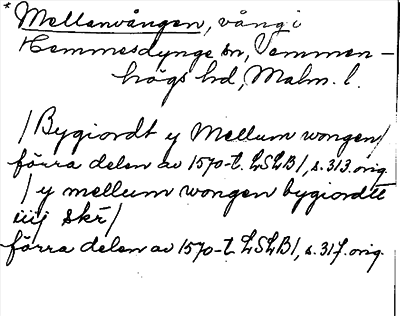 * Mellanvången, vång i
Hemmesdynge sn, Vemmen-
högs hd, Malm. l.
/Bygiordt y Mellum wongen/
förra delen av 1570-t. LSLB1, s. 313. orig.
/ y mellum wongen bygiordtt
iiij skr/
förra delen av 1570-t. LSLB1, s. 317. orig.